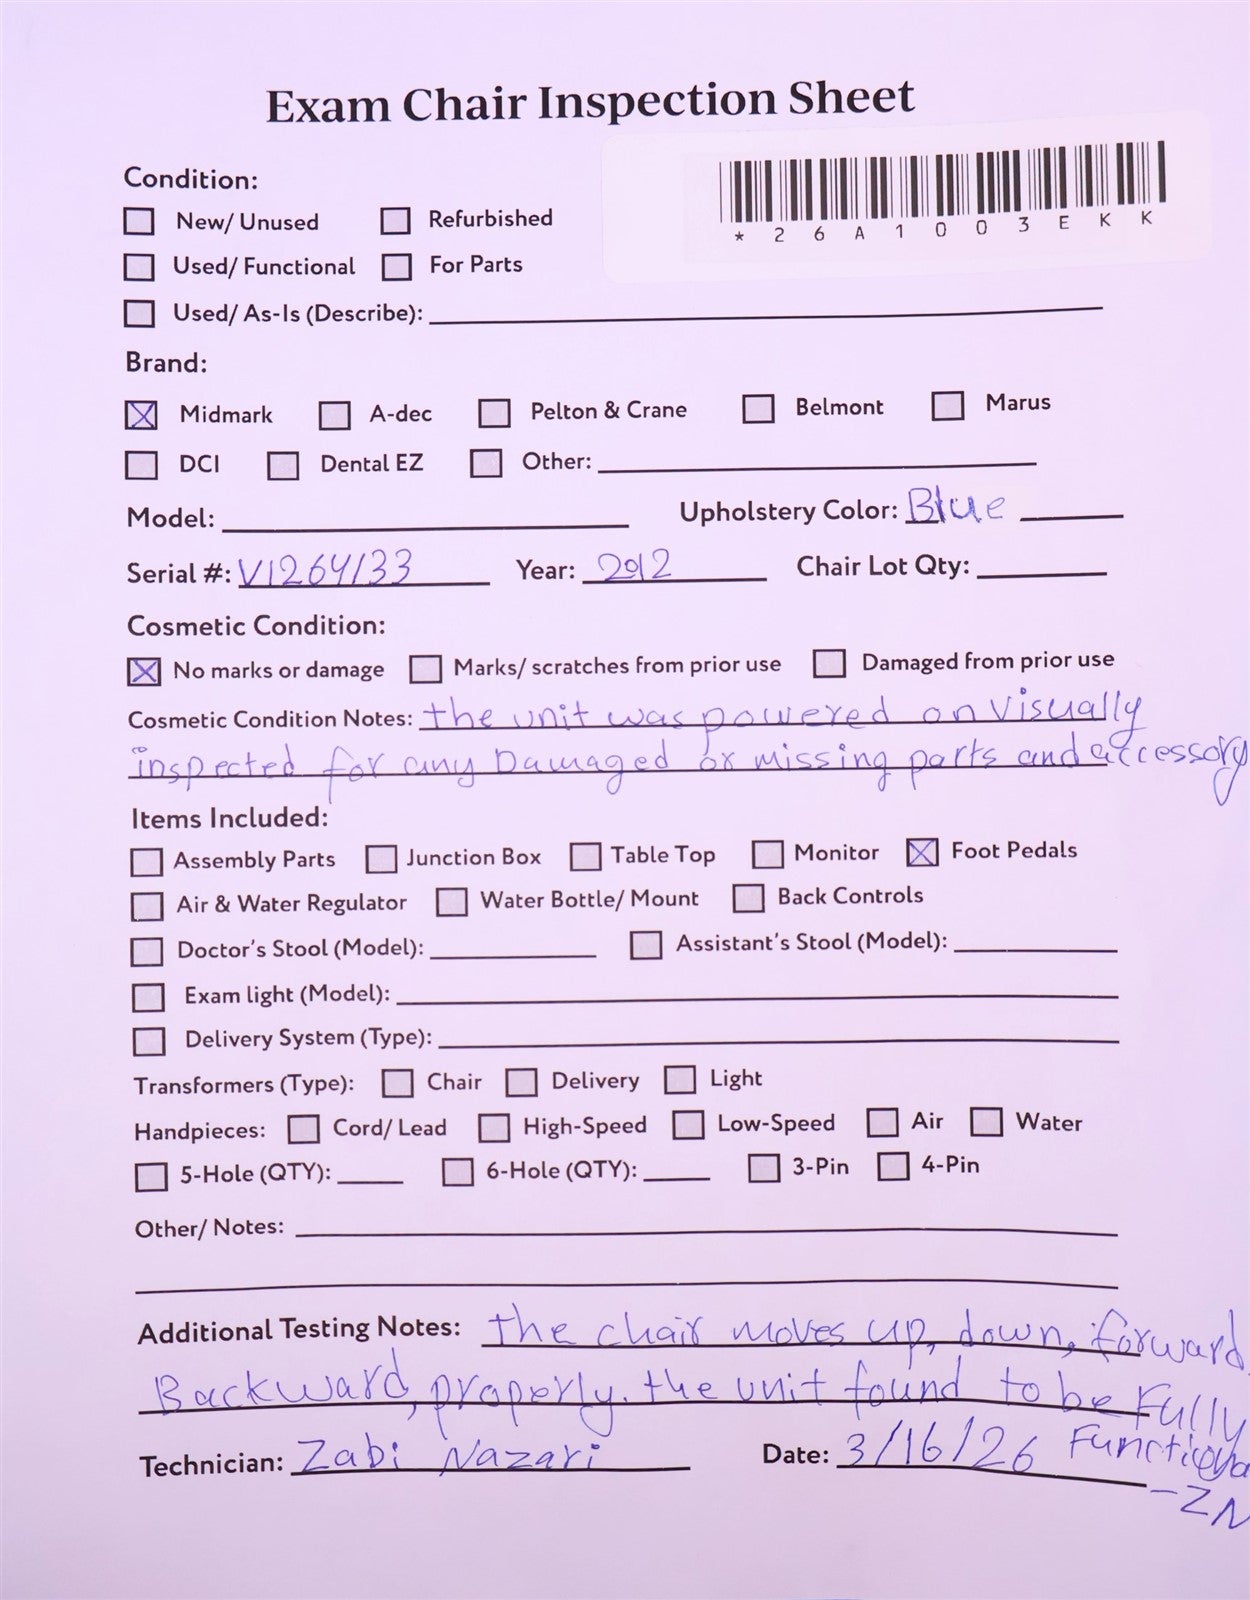 Exam Chair Inspection Sheet
*26A1003EKK
Condition:
New/ Unused Refurbished
Used/ Functional For Parts
Used/ As-Is (Describe):
Brand:
Midmark A-dec Pelton & Crane Belmont Marus
DCI Dental EZ Other:
Model: Upholstery Color: Blue
Serial #: V1264133 Year: 2012 Chair Lot Qty:
Cosmetic Condition:
No marks or damage Marks/ scratches from prior use Damaged from prior use
Cosmetic Condition Notes: the unit was powered on visually
inspected for any Damaged or missing parts and accessory
Items Included:
Assembly Parts Junction Box Table Top Monitor Foot Pedals
Air & Water Regulator Water Bottle/ Mount Back Controls
Doctor's Stool (Model): Assistant's Stool (Model):
Exam light (Model):
Delivery System (Type):
Transformers (Type): Chair Delivery Light
Handpieces: Cord/ Lead High-Speed Low-Speed Air Water
5-Hole (QTY): 6-Hole (QTY): 3-Pin 4-Pin
Other/ Notes:
Additional Testing Notes: the chair moves up, down, forward
Backward, properly. the unit found to be Fully
Functional
Technician: Zabi Nazari Date: 3/16/26
-ZN